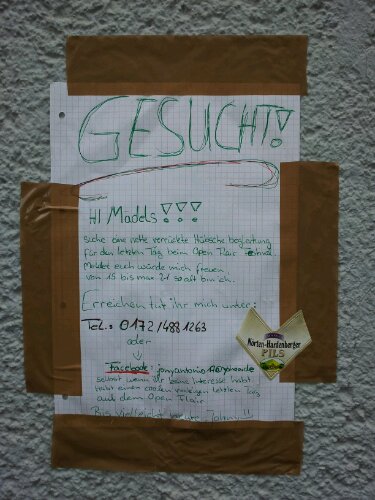 GESUCHT!
HI Mädels !!!
Suche eine nette verrückte Hübsche begleitung
für den letzten Tag beim Open Flair
Meldet euch würde mich freuen
von 18 bis max 21 so alt bin ich.
Erreichen tut ihr mich unter:
TEL.: 0172/4831263
oder
Facebook: jonyantonio
selbst wenn ihr keine Interesse habt
habt einen coolen letzten Tag
auf dem Open Flair
Bis vielleicht
Nörten-Hardenberger
PILS